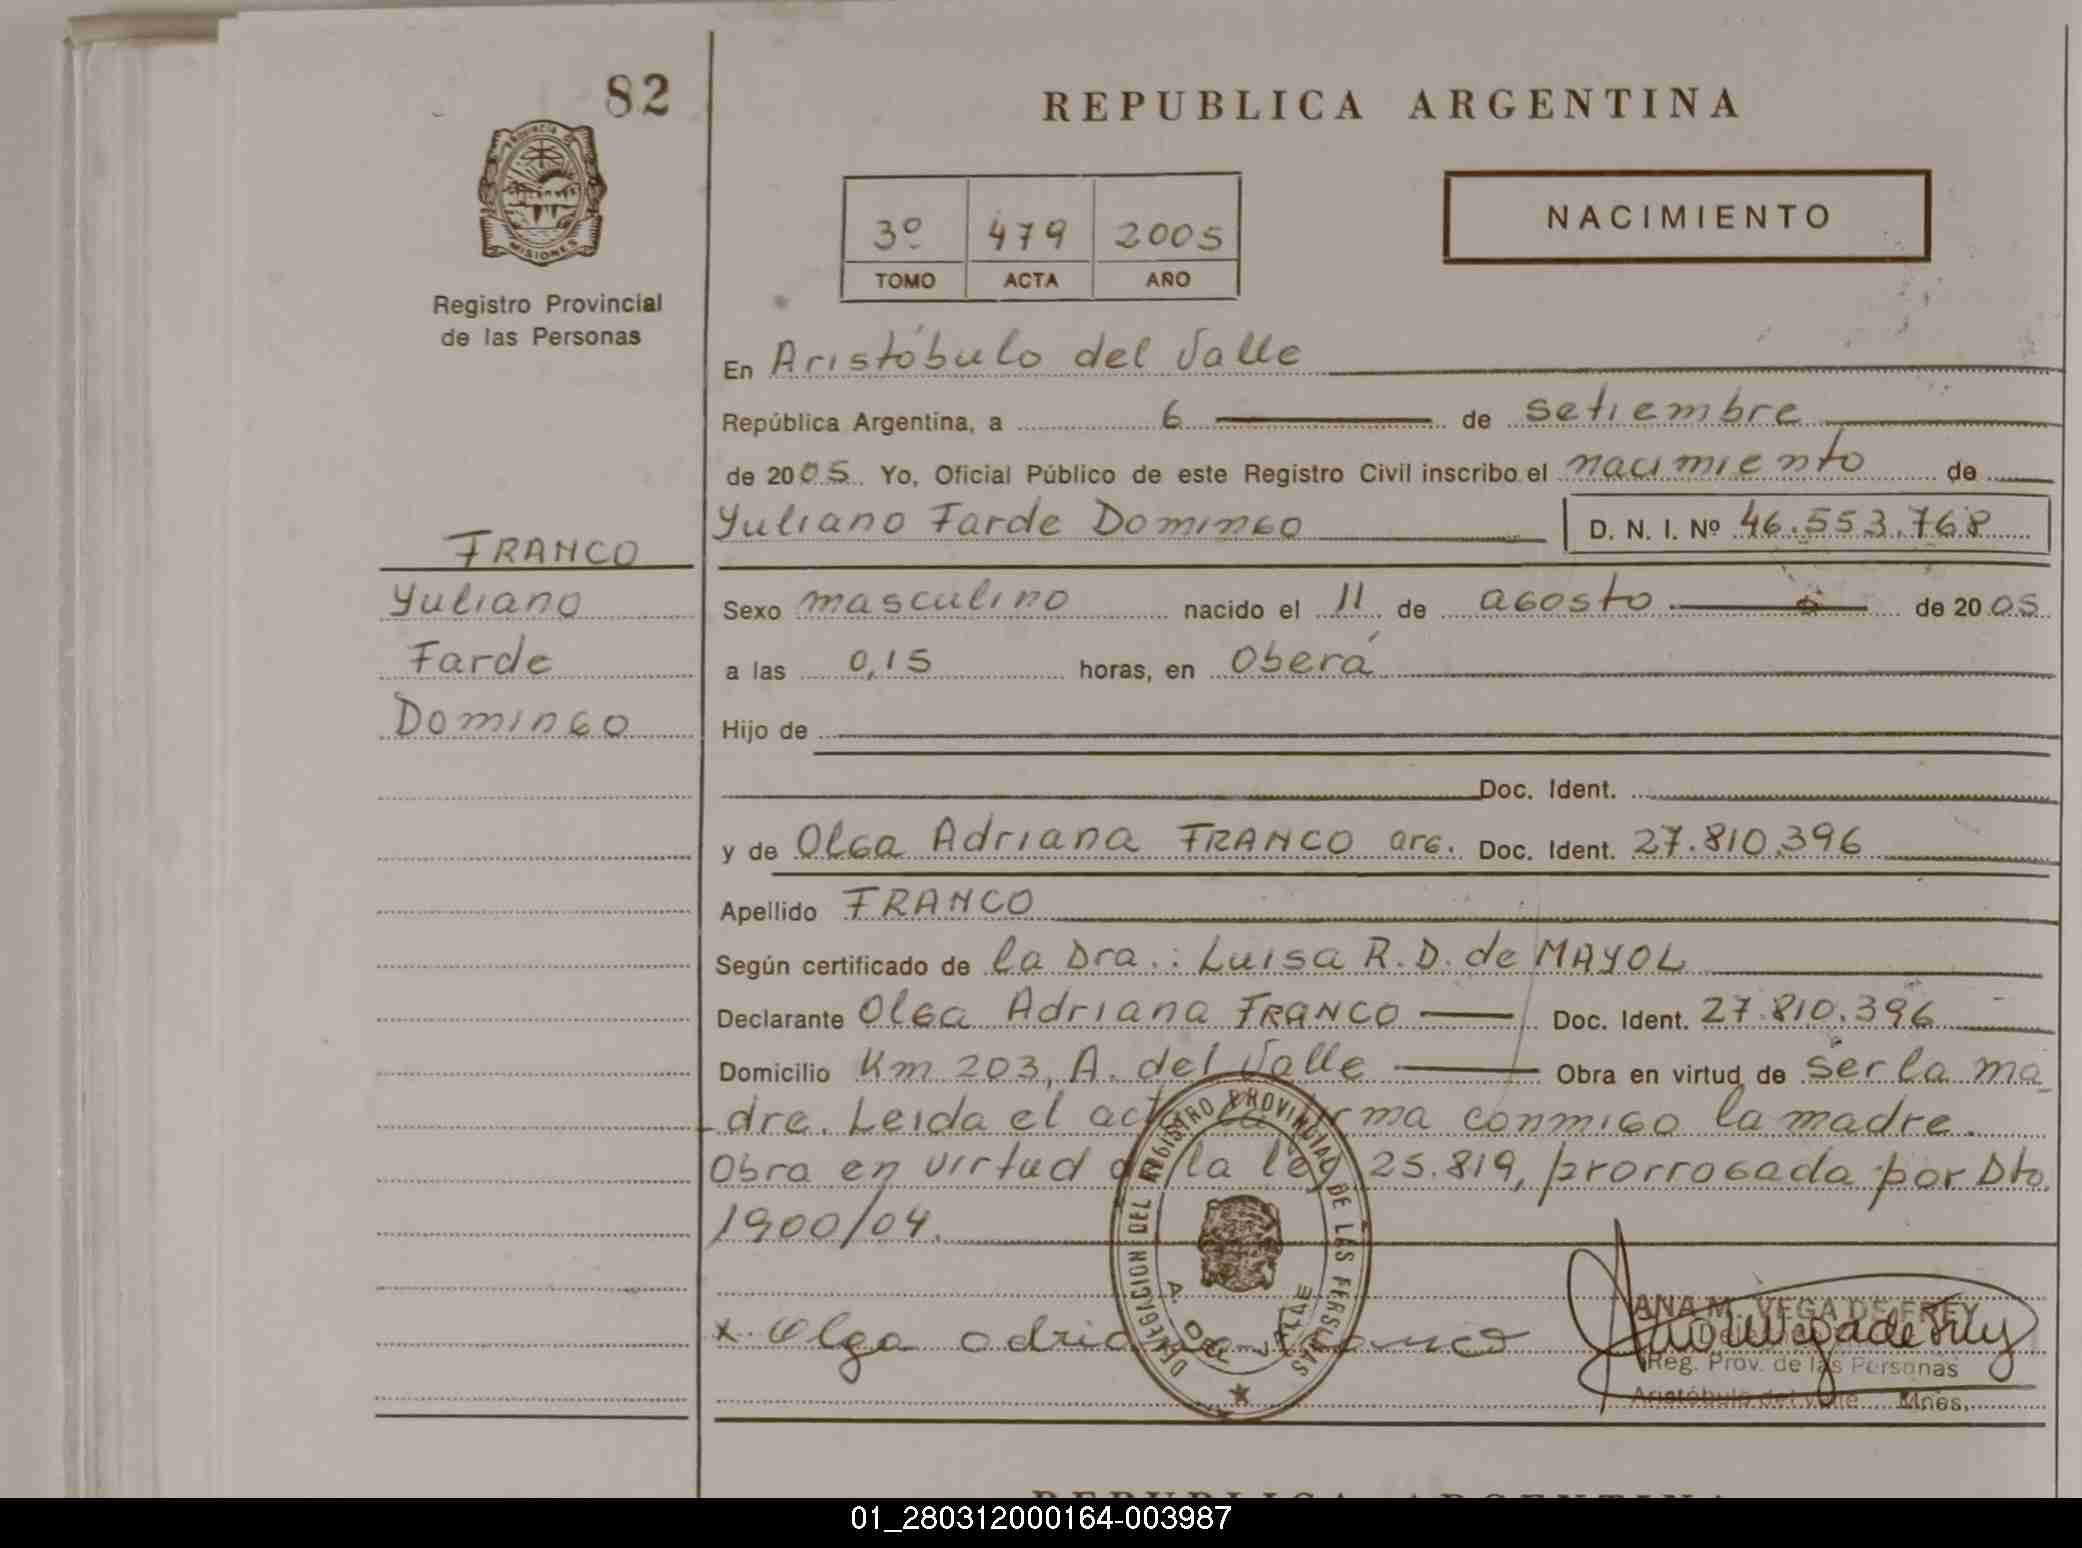 82
REPUBLICA ARGENTINA
PROVINCIA DE
MISIONES
Registro Provincial
de las Personas
3º 479 2005
TOMO ACTA AÑO
NACIMIENTO
En Aristóbulo del Valle
República Argentina, a 6 de setiembre
de 2005. Yo, Oficial Público de este Registro Civil inscribo el nacimiento de
Yuliano Farde Domingo D. N. I. Nº 46.553.768
FRANCO
Yuliano
Farde
Domingo
Sexo masculino nacido el 11 de agosto de 2005
a las 0,15 horas, en Oberá
Hijo de
Doc. Ident.
y de Olga Adriana FRANCO arg. Doc. Ident. 27.810.396
Apellido FRANCO
Según certificado de la Dra.: Luisa R. D. de MAYOL
Declarante Olga Adriana FRANCO Doc. Ident. 27.810.396
Domicilio Km 203, A. del Valle Obra en virtud de ser la ma
dre. Leida el acta la firma conmigo la madre.
Obra en virtud de la ley 25.819, prorrogada por Dto.
1900/04.
DELEGACION DEL REGISTRO PROVINCIAL DE LAS PERSONAS
A. DEL VALLE
x Olga adriana Franco
ANA M. VEGA DE FREY
Reg. Prov. de las Personas
Aristóbulo del Valle Mnes.
REPUBLICA ARGENTINA
01_280312000164-003987